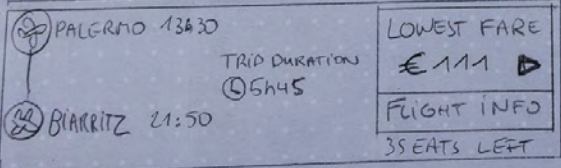 PALERMO 13h30
TRIP DURATION
5h45
BIARRITZ 21:50
LOWEST FARE
€ 111
FLIGHT INFO
3 SEATS LEFT